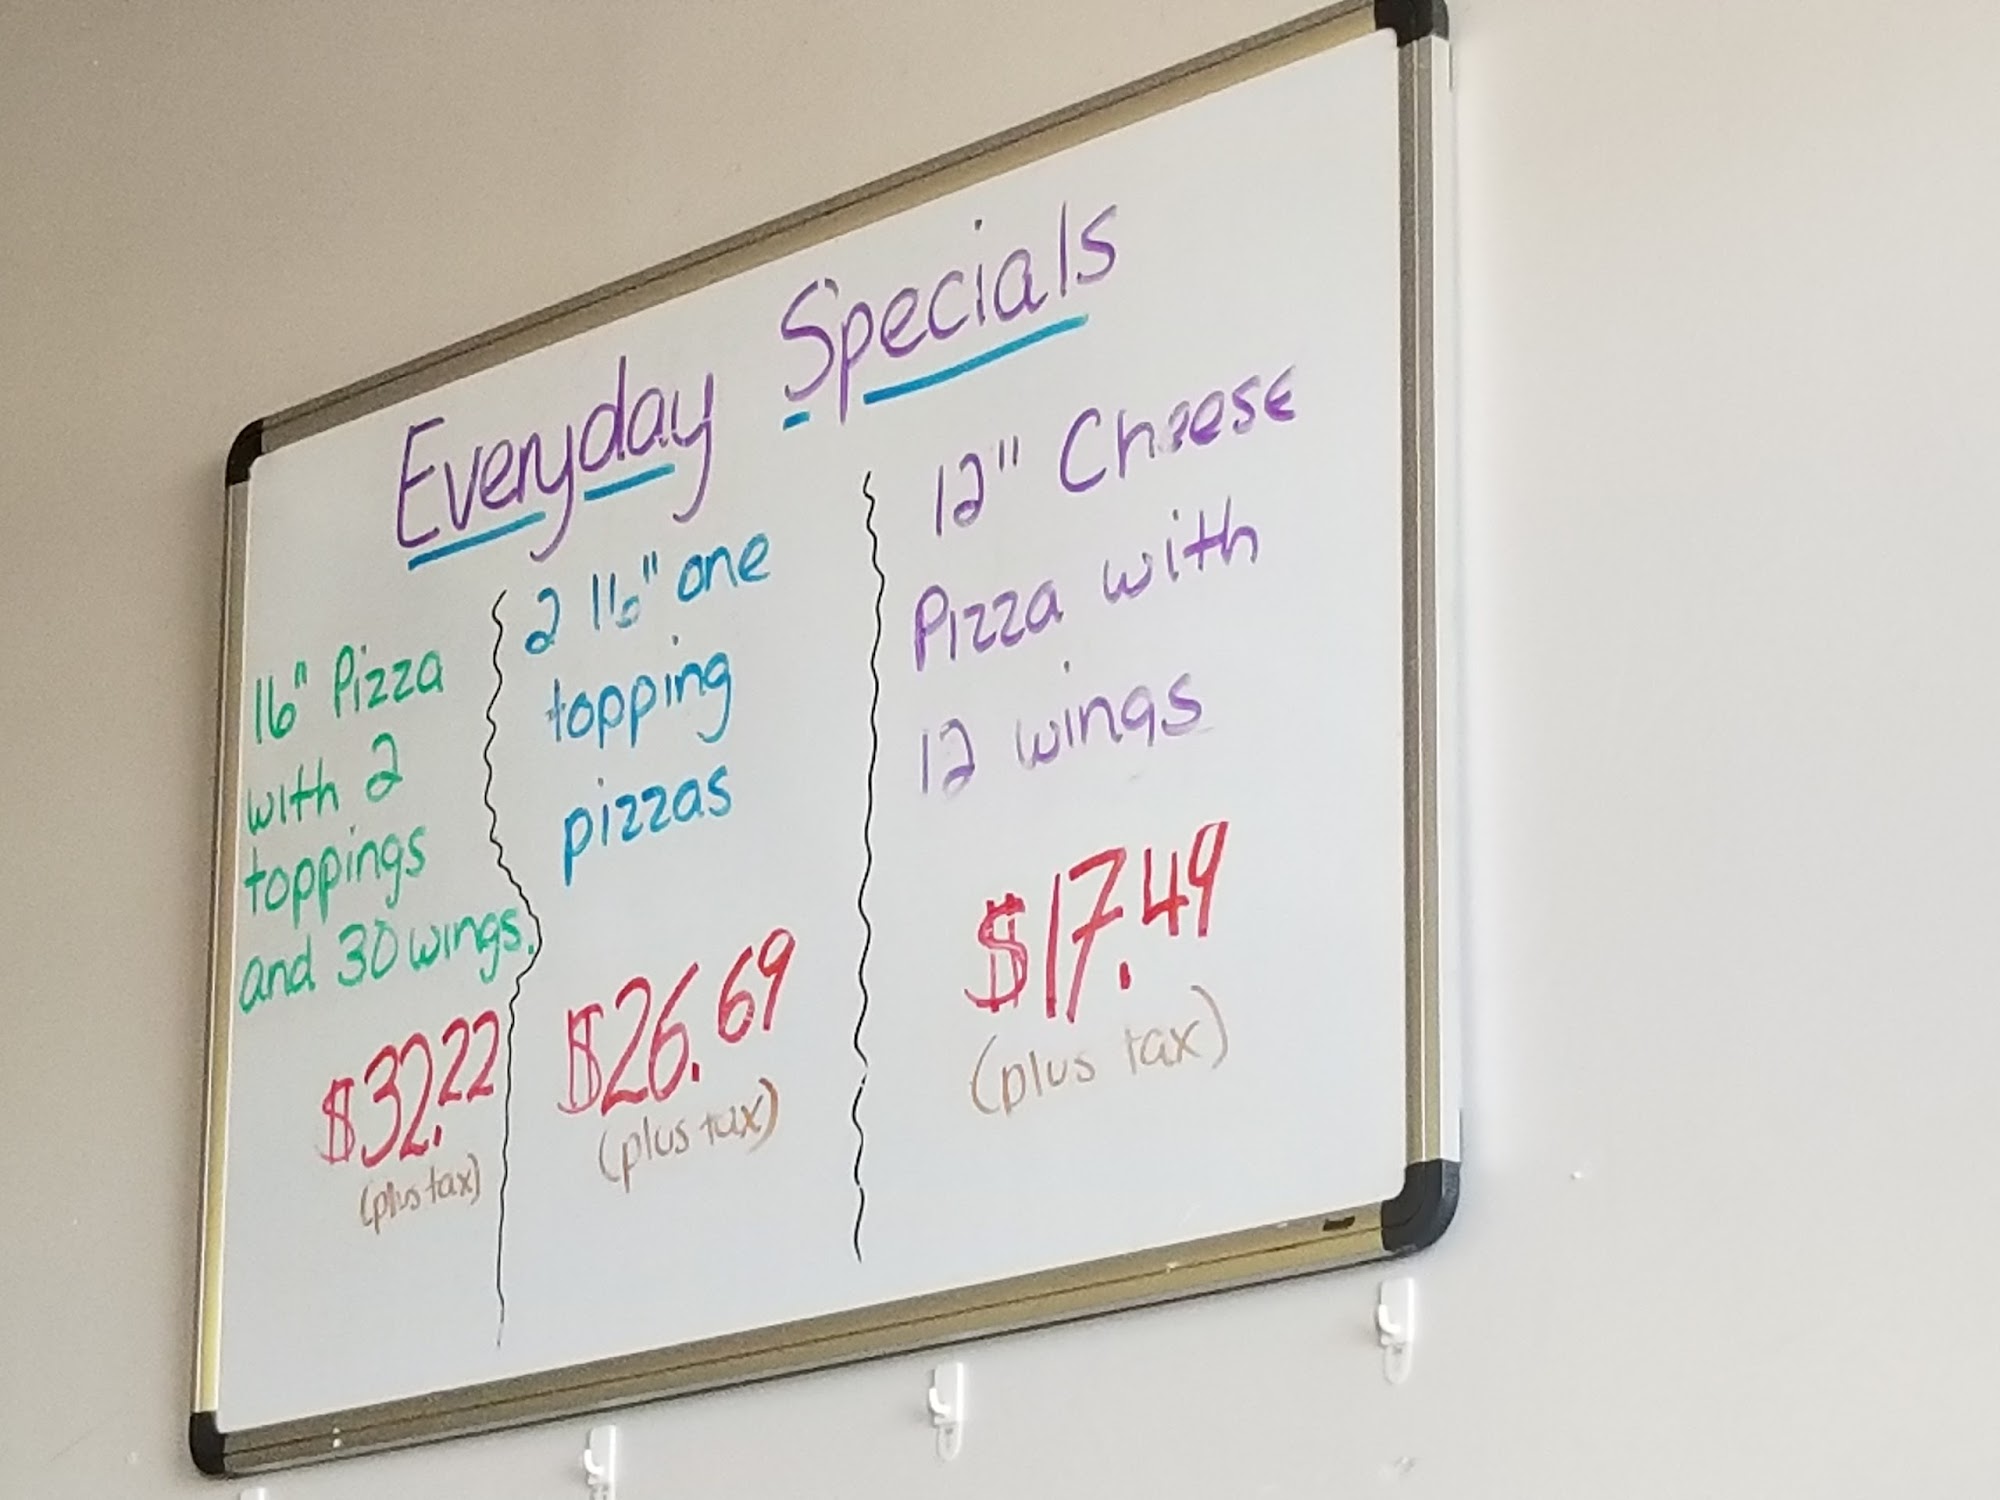 Everyday Specials
16" Pizza
with 2
toppings
and 30 wings.
$32.22
(plus tax)
2 16" one
topping
pizzas
$26.69
(plus tax)
12" Cheese
Pizza with
12 wings
$17.49
(plus tax)